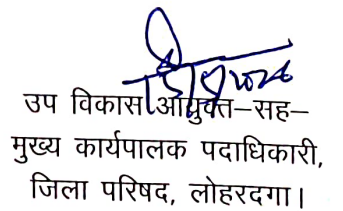 उप विकास आयुक्त–सह–
मुख्य कार्यपालक पदाधिकारी,
जिला परिषद, लोहरदगा।